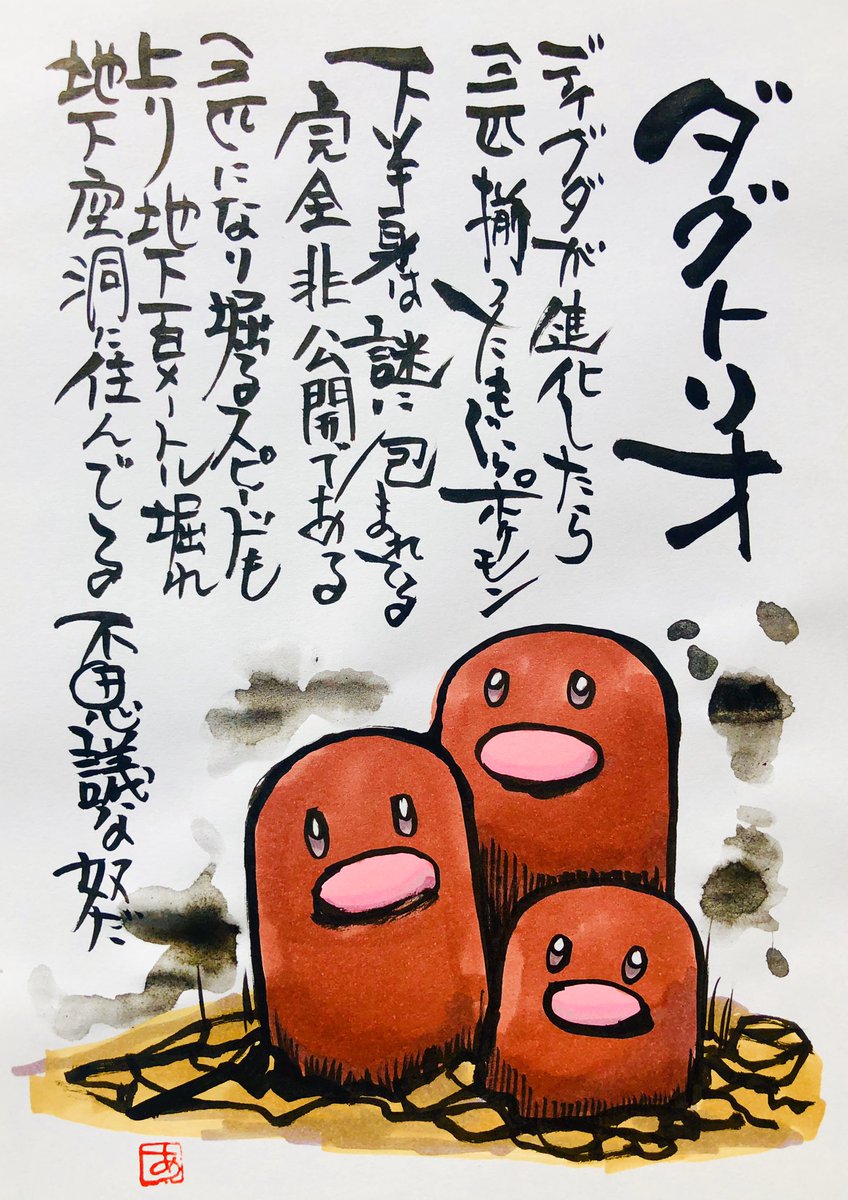 ダグトリオ
ディグダが進化したら
三匹揃ったもぐらポケモン
下半身は謎に包まれてる
完全非公開である
三匹になり掘るスピードも
上り地下百メートル掘れ
地下空洞に住んでる不思議な奴だ
あ